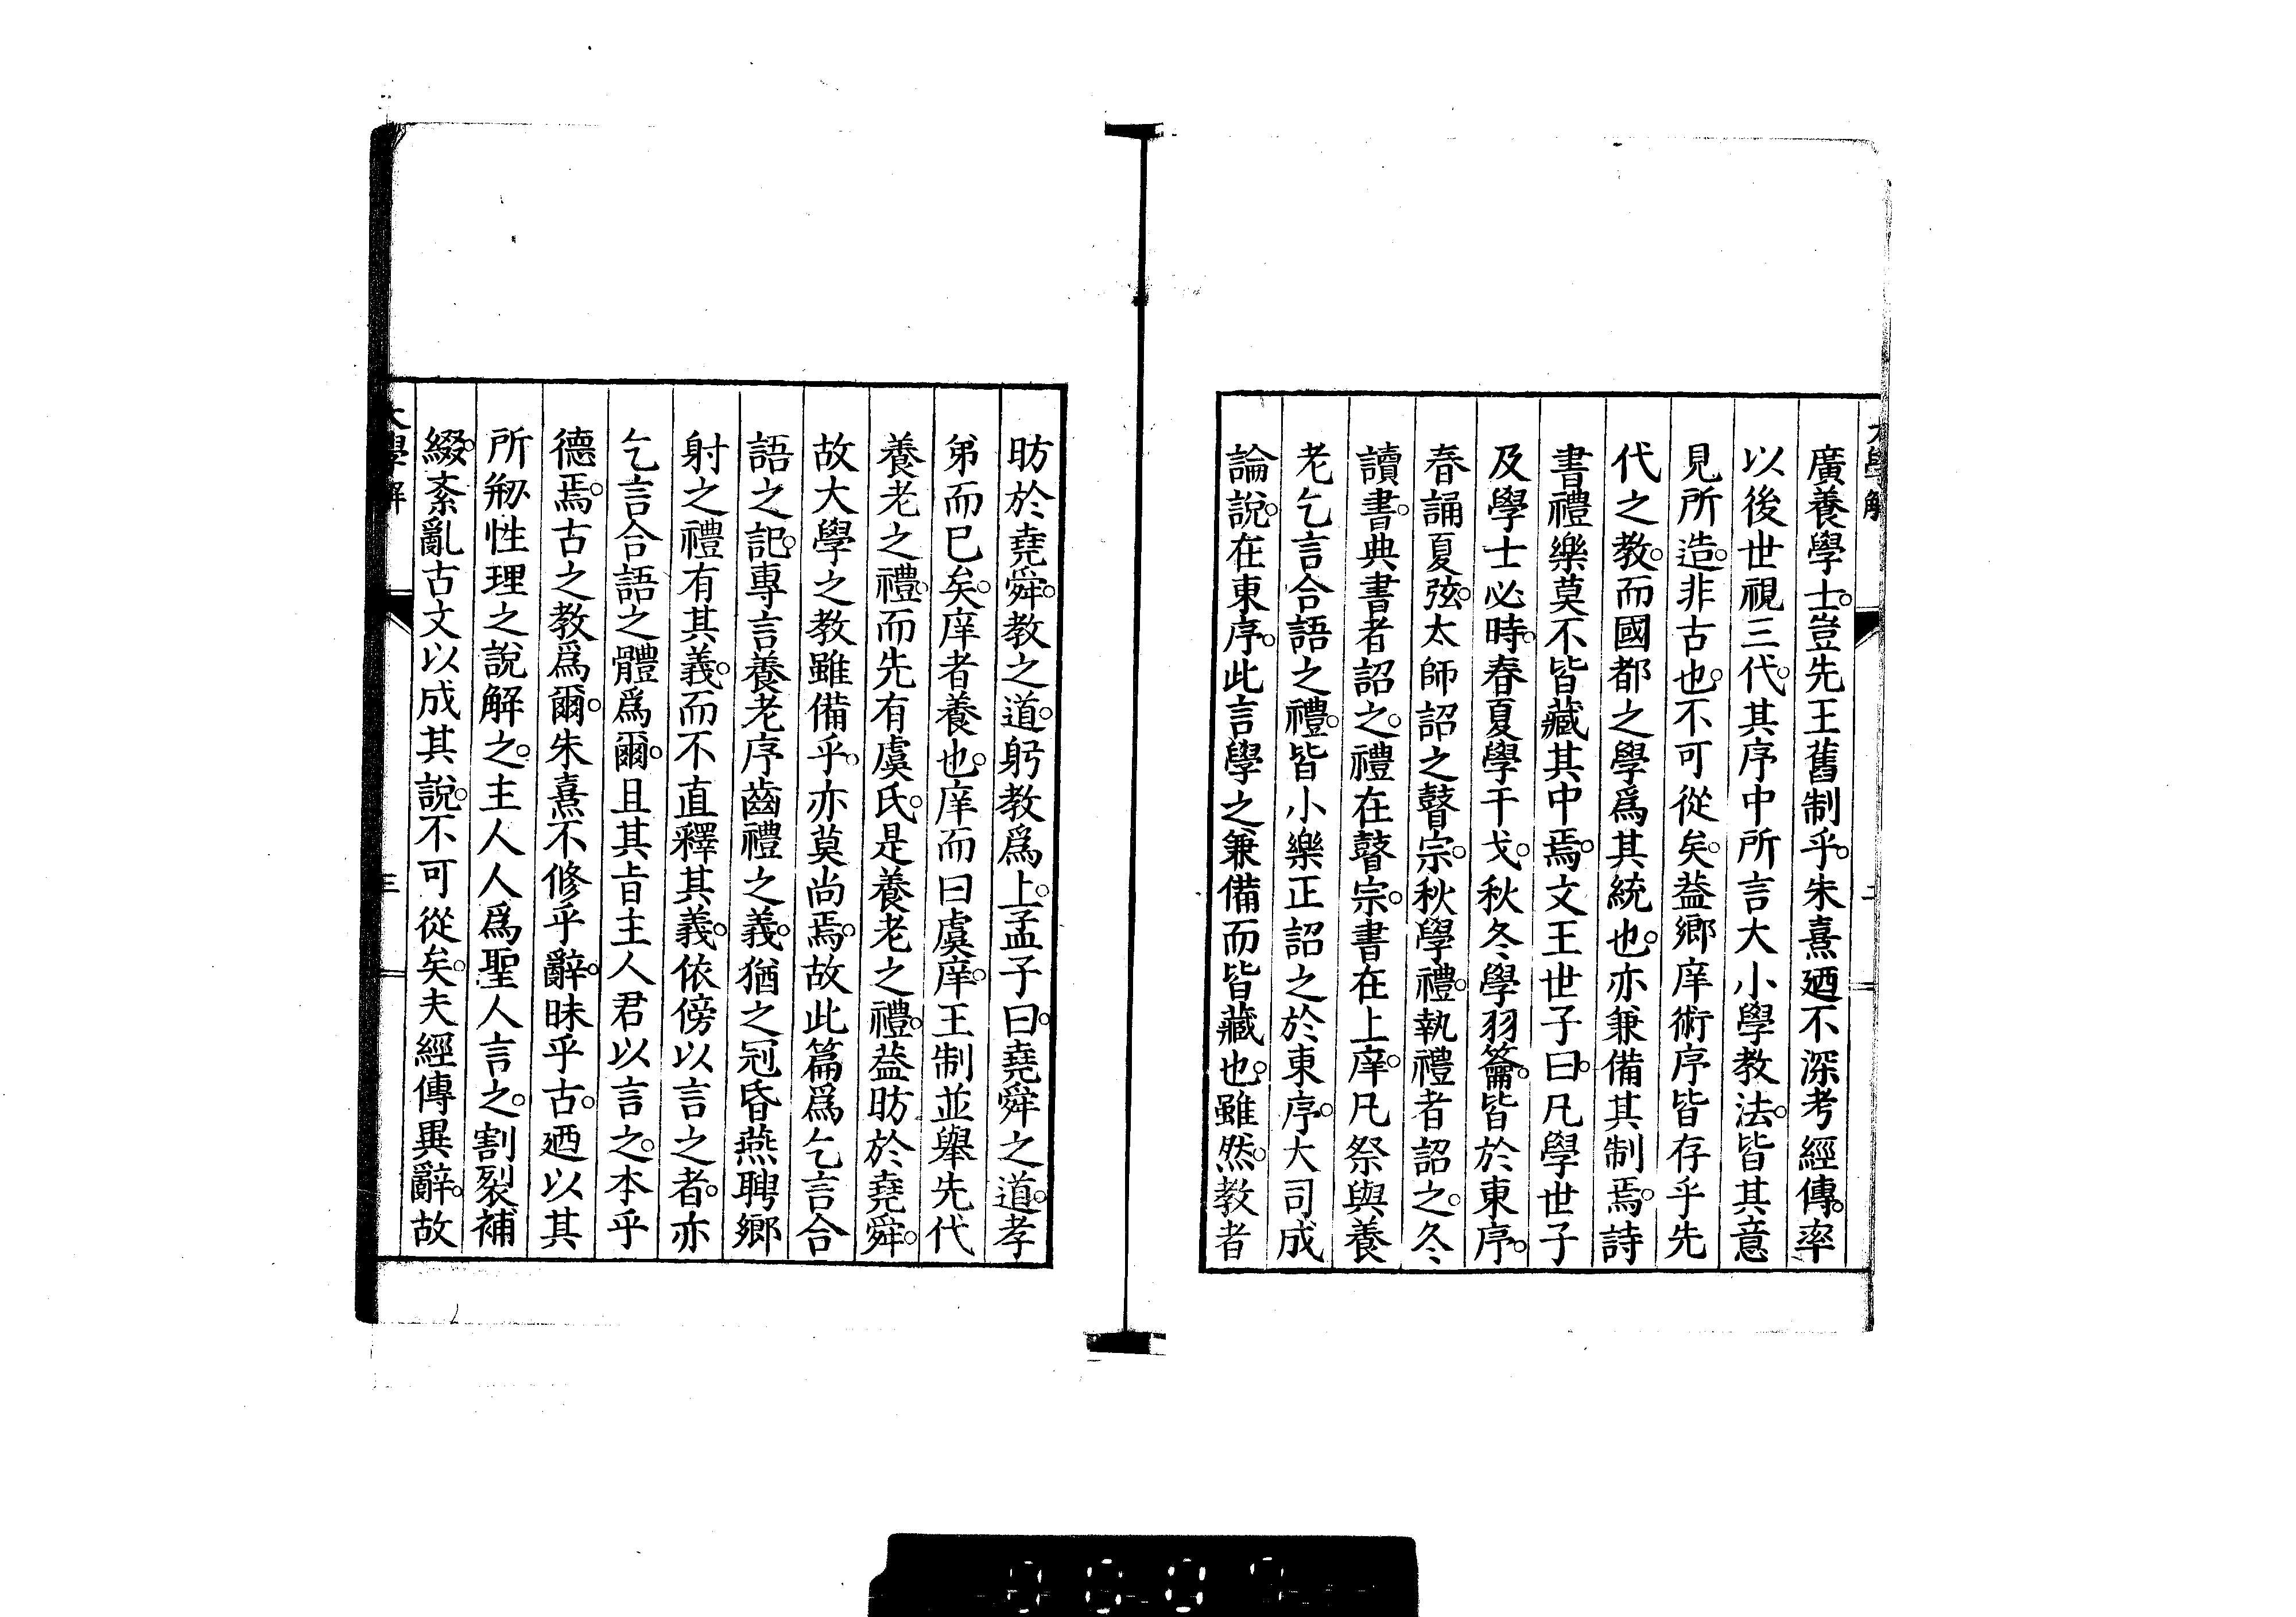 大學解
廣養學士。豈先王舊制乎。朱熹廼不深考經傳。率
以後世視三代。其序中所言大小學教法。皆其意
見所造。非古也。不可從矣。葢鄉庠術序皆存乎先
代之教。而國都之學爲其統也。亦兼備其制焉。詩
書禮樂莫不皆藏其中焉。文王世子曰。凡學世子
及學士必時。春夏學干戈。秋冬學羽籥。皆於東序。
春誦夏弦。太師詔之瞽宗。秋學禮。執禮者詔之。冬
讀書。典書者詔之。禮在瞽宗。書在上庠。凡祭與養
老乞言合語之禮。皆小樂正詔之於東序。大司成
論說。在東序。此言學之兼備而皆藏也。雖然。教者
昉於堯舜。教之道。躬教爲上。孟子曰。堯舜之道。孝
弟而已矣。庠者養也。庠而曰虞庠。王制並舉先代
養老之禮。而先有虞氏。是養老之禮。葢昉於堯舜。
故大學之教雖備乎。亦莫尚焉。故此篇爲乞言合
語之記。專言養老序齒禮之義。猶之冠昏燕聘鄉
射之禮有其義。而不直釋其義。依傍以言之者。亦
乞言合語之體爲爾。且其旨主人君以言之。本乎
德焉。古之教爲爾。朱熹不修乎辭。昧乎古。廼以其
所剏性理之說解之。主人人爲聖人言之。割裂補
綴。紊亂古文以成其說。不可從矣。夫經傳異辭。故
大學解
三